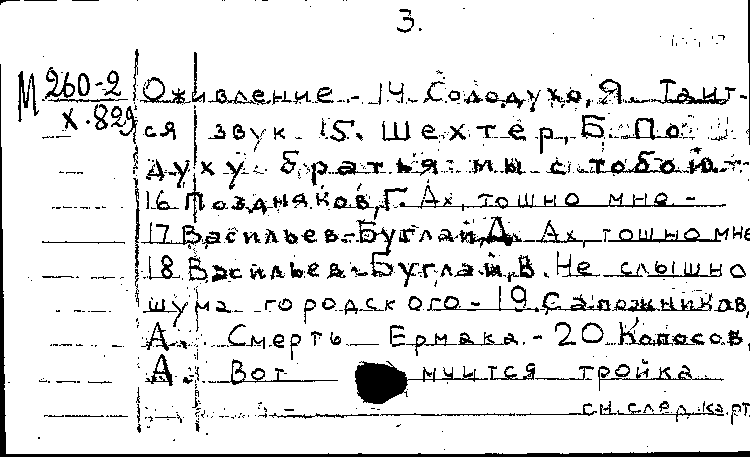 3.
М 260-2 Оживление - 14. Солодухо, Я. Таит-
х.829 ся звук. 15. Шехтер, Б. По
духу братья мы с тобой. -
16 Поздняков, Г. Ах, тошно мне -
17 Васильев-Буглай, Д. Ах, тошно мне
18 Васильев-Буглай, Д. Не слышно
шума городского - 19 Сапожников,
А. Смерть Ермака. - 20 Колосов,
А. Вот мчится тройка
см. след. карт